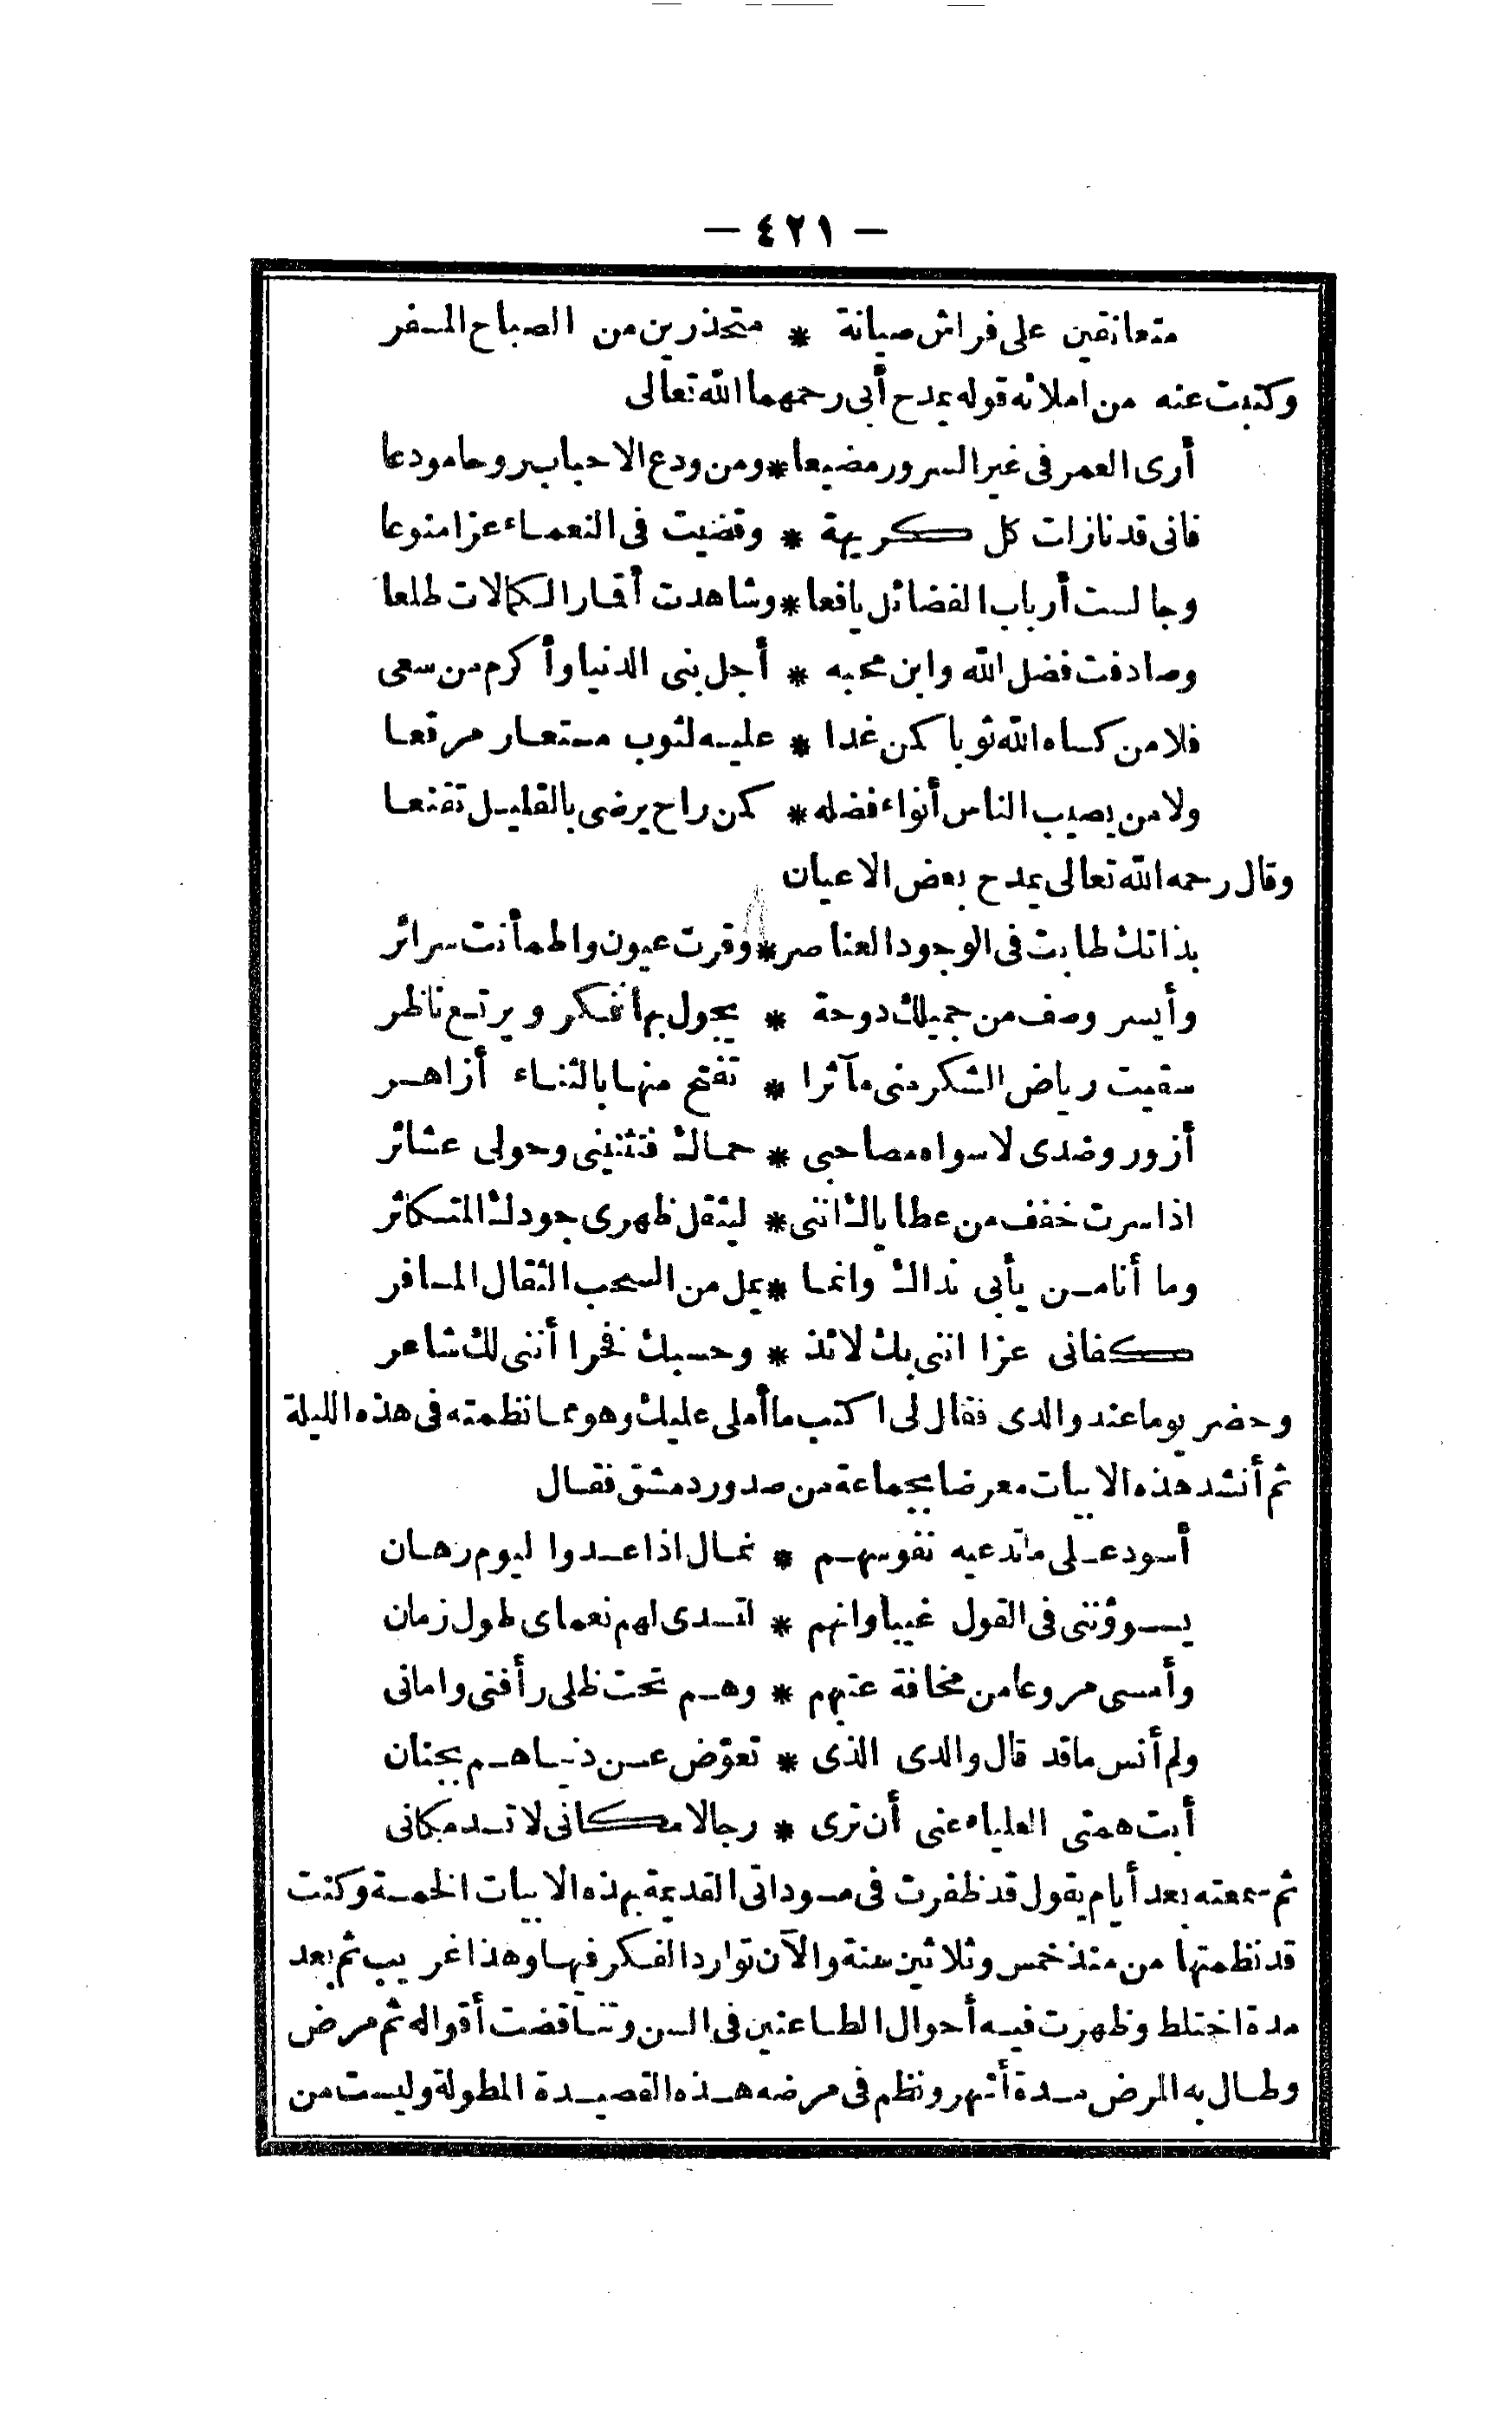 — ٤٢١ —
متعانقين على فراش صيانة * متحذرين من الصباح المسفر
وكتبت عنه من املائه قوله يمدح أبى رحمهما الله تعالى
أرى العمر فى غير السرور مضيعا * ومن ودع الاحباب روحا مودعا
فانى قد نازلت كل كريهة * وقضيت فى النعماء عزا منوعا
وجالست أرباب الفضائل يافعا * وشاهدت أقمار الكمالات طلعا
وصادفت فضل الله وابن محبه * أجل بنى الدنيا وأكرم من سعى
فلا من كساه الله ثوبا كمن غدا * عليه لثوب مستعار مرقعا
ولا من يصيب الناس أنواء فضله * كمن راح يرضى بالقليل تقنعا
وقال رحمه الله تعالى يمدح بعض الاعيان
بذاتك طابت فى الوجود العناصر * وقرت عيون واطمأنت سرائر
وأيسر وصف من جميلك دوحة * يجول بها فكر ويرتع ناظر
سقيت رياض الشكر منى مآثرا * تفتح منها بالثناء أزاهر
أزور وضدى لا سواه مصاحبى * حماك فتثنينى وحولى عشائر
اذا سرت خفف من عطاياك اننى * ليثقل ظهرى جودك المتكاثر
وما أنا من يأبى نداك وانما * يمل من السحب الثقال المسافر
كفانى عزا اننى بك لائذ * وحسبك فخرا أننى لك شاعر
وحضر يوما عند والدى فقال لى اكتب ما أملى عليك وهو مما نظمته فى هذه الليلة
ثم أنشد هذه الابيات معرضا بجماعة من صدور دمشق فقال
أسود على ما تدعيه نفوسهم * نمال اذا عدوا ليوم رهان
يسوؤننى فى القول غيبا وانهم * لتسدى لهم نعماى طول زمان
وأمسى مروعا من مخافة عتبهم * وهم تحت ظلى رأفتى وامانى
ولم أنس ما قد قال والدى الذى * تعوّض عن دنياهم بجنان
أبت همتى العلياء عنى أن ترى * رجالا مكانى لا تسد مكانى
ثم سمعته بعد أيام يقول قد ظفرت فى مسوداتى القديمة بهذه الابيات الخمسة وكنت
قد نظمتها من منذ خمس وثلاثين سنة والآن توارد الفكر فيها وهذا غريب ثم بعد
مدة اختلط وظهرت فيه أحوال الطاعنين فى السن وتناقضت أقواله ثم مرض
وطال به المرض مدة أشهر ونظم فى مرضه هذه القصيدة المطولة وليست من